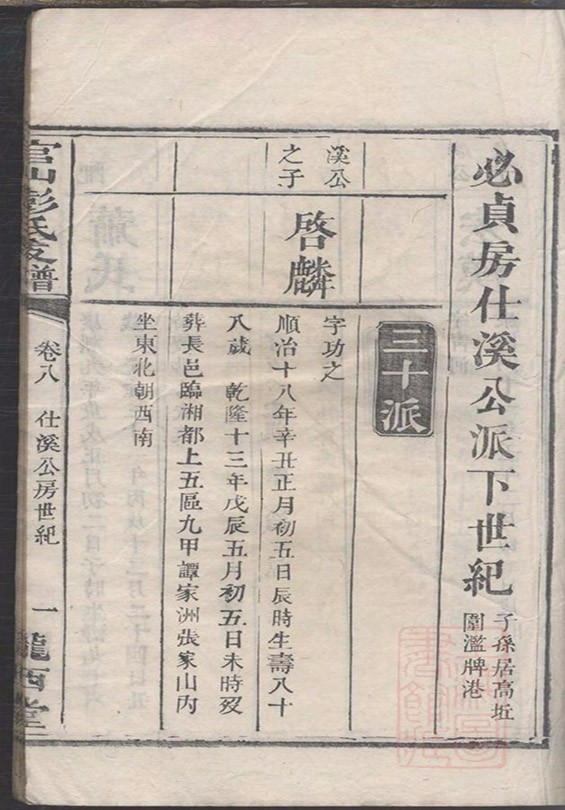 必貞房仕溪公派下世紀
子孫居高坵
圍濫牌港
三十派
溪公
之子
啓麟
字功之
順治十八年辛丑正月初五日辰時生壽八十
八歲 乾隆十三年戊辰五月初五日未時歿
葬長邑臨湘都上五區九甲譚家洲張家山丙
坐東北朝西南
官山彭氏支譜
卷八 仕溪公房世紀
一
隴西堂